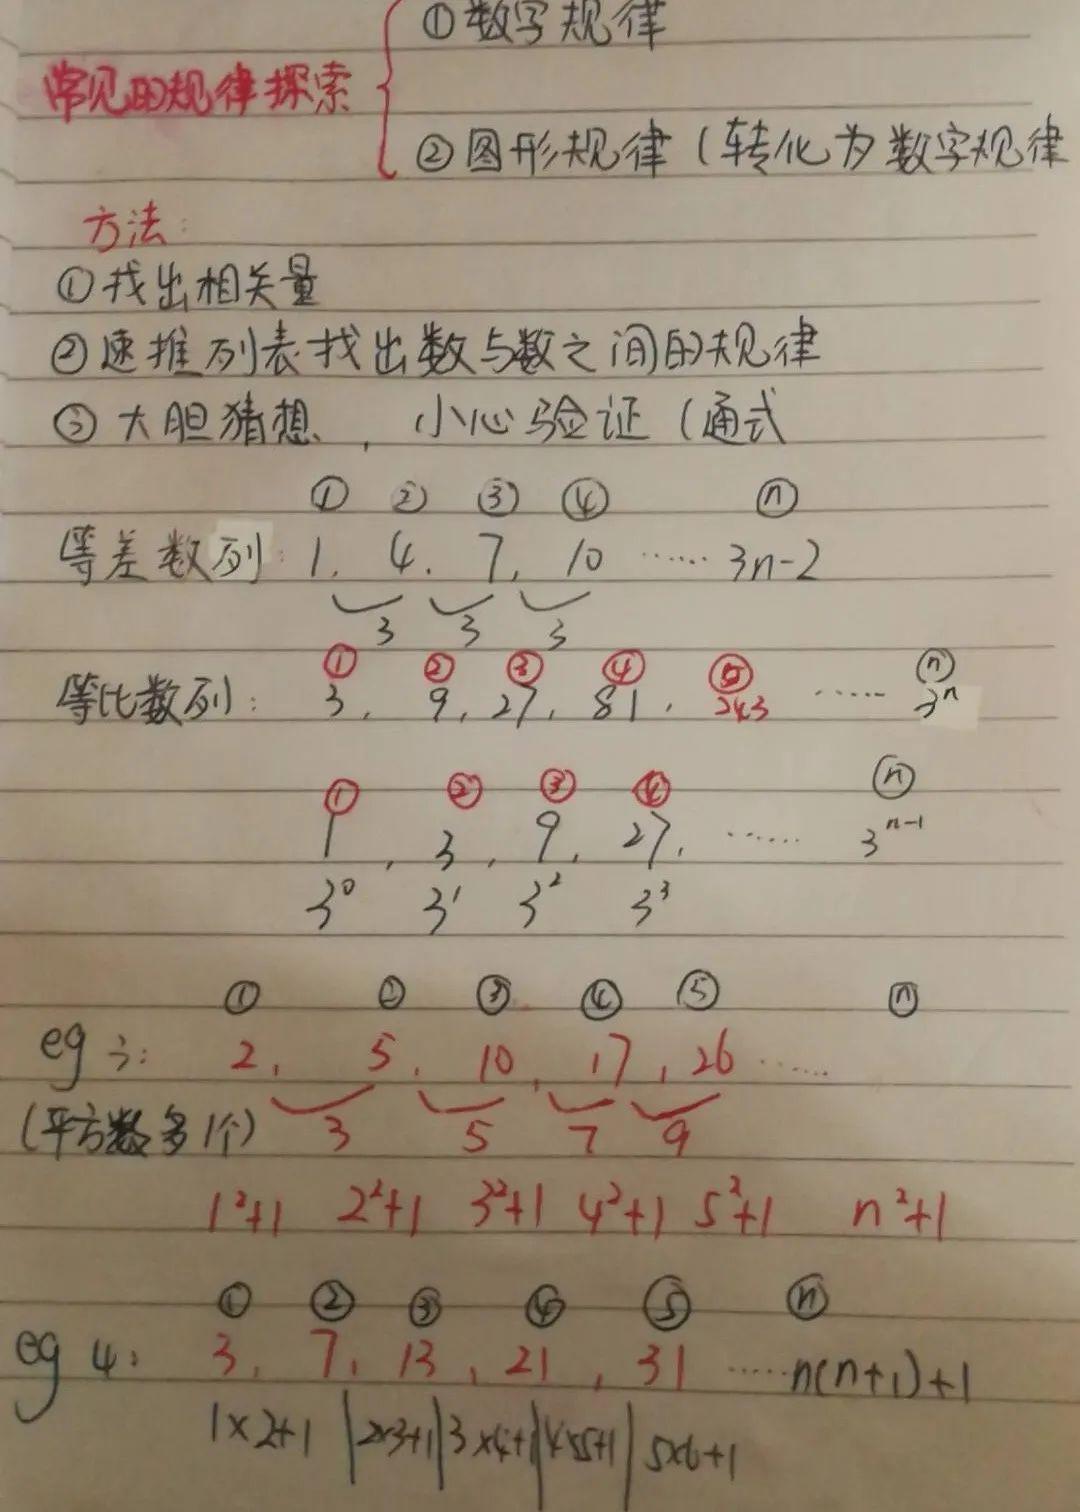 ①数字规律
常见的规律探索
②图形规律（转化为数字规律
方法：
①找出相关量
②速推列表找出数与数之间的规律
③大胆猜想，小心验证（通式
① ② ③ ④ ⓝ
等差数列：1, 4, 7, 10 …… 3n-2
3 3 3
① ② ③ ④ ⑤ ⓝ
等比数列：3, 9, 27, 81, 243 …… 3ⁿ
① ② ③ ④ ⓝ
1, 3, 9, 27, …… 3ⁿ⁻¹
3⁰ 3¹ 3² 3³
① ② ③ ④ ⑤ ⓝ
eg 3: 2, 5, 10, 17, 26 ……
(平方数多1个) 3 5 7 9
1²+1 2²+1 3²+1 4²+1 5²+1 n²+1
① ② ③ ④ ⑤ ⓝ
eg 4: 3, 7, 13, 21, 31 …… n(n+1)+1
1×2+1 | 2×3+1 | 3×4+1 | 4×5+1 | 5×6+1